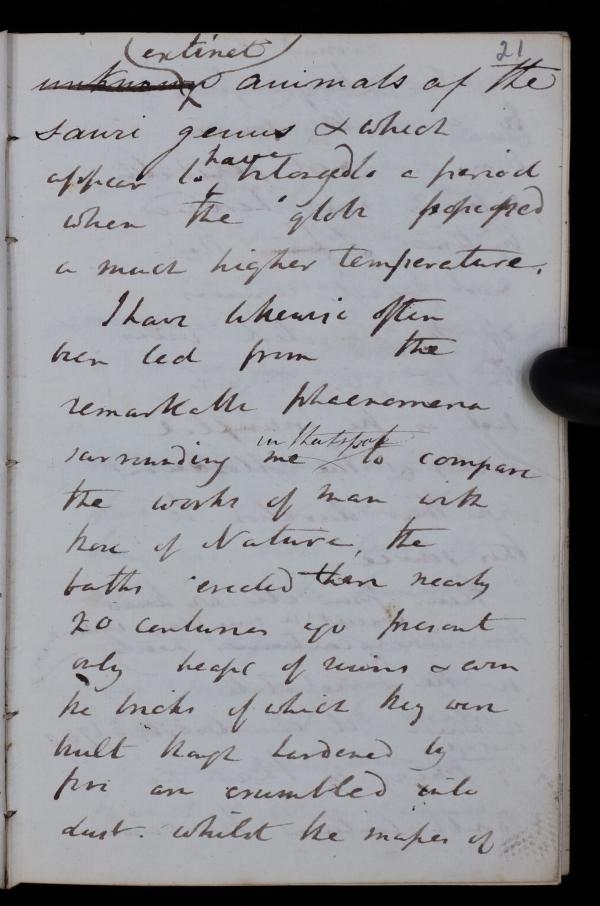 21
extinct
unknown animals of the
sauri genus & which
appear to have belonged to a period
when the globe possessed
a much higher temperature.
I have likewise often
been led from the
remarkable phaenomena
surrounding me in that spot to compare
the works of man with
those of Nature, the
baths erected there nearly
20 centuries ago present
only heaps of ruins & even
the bricks of which they were
built though hardened by
fire are crumbled into
dust. whilst the masses of